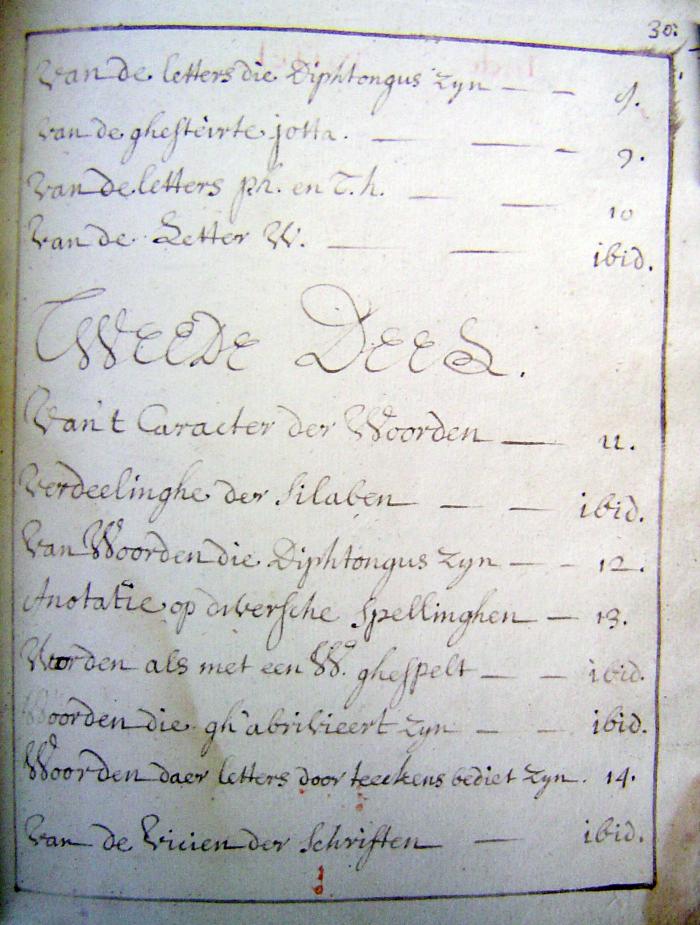 30:
Van de letters die Diphtongus zyn — — 9.
van de ghesteirte jotta. — — — 9.
Van de letters ph. en T.h. — — 10
Van de Letter W. — — ibid.
TWEEDE DEEL.
Van't Caracter der Woorden — 11.
Verdeelinghe der silaben — — ibid.
Van Woorden die Diphtongus zyn — — 12.
Anotatie op diversche spellinghen — 13.
Worden als met een W. ghespelt — — ibid.
Woorden die gh'abrivieert zyn — — ibid.
Woorden daer letters door teeckens bediet zyn. 14.
Van de Vicien der schriften — ibid.